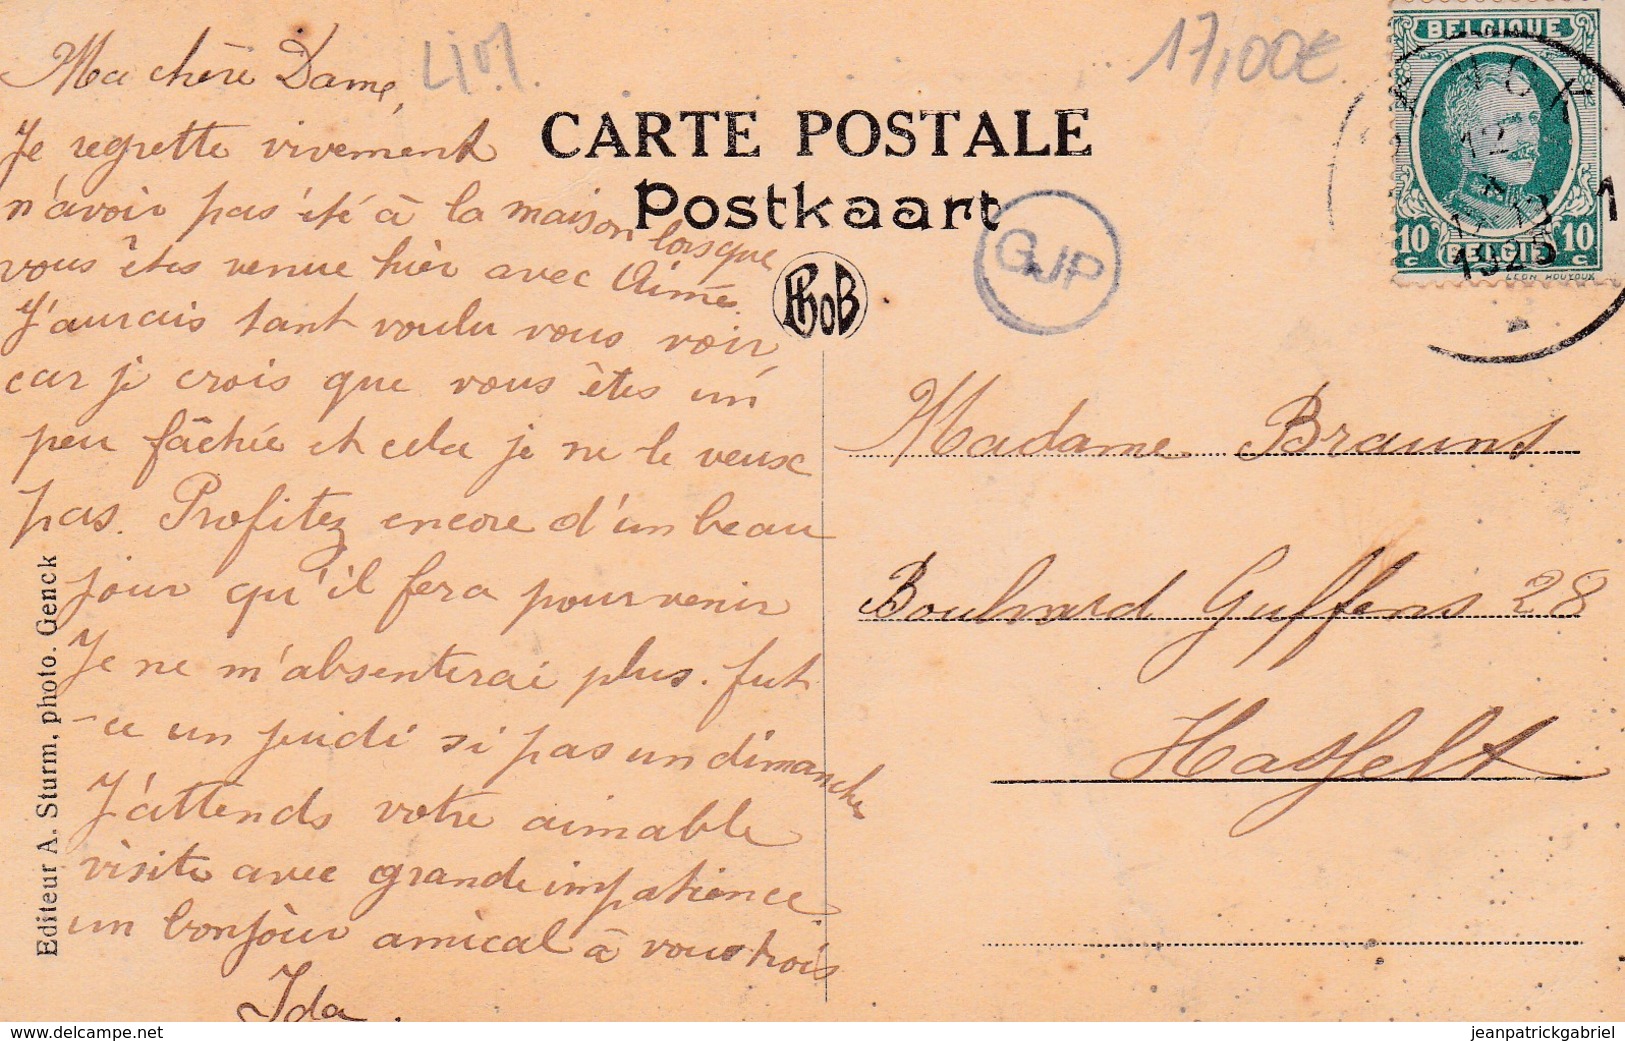 Ma chère Dame,
Je regrette vivement
n'avoir pas été à la maison lorsque
vous êtes venue hier avec Aimée.
J'aurais tant voulu vous voir
car je crois que vous êtes un
peu fâchée et cela je ne le veux
pas. Profitez encore d'un beau
jour qu'il fera pour venir
Je ne m'absenterai plus. fut
-ce un jeudi si pas un dimanche
J'attends votre aimable
visite avec grande impatience
un bonjour amical à vous trois
Ida.
LIM.
17,00€
CARTE POSTALE
Postkaart
GJP
PhoB
BELGIQUE
10 c
BELGIE
10 c
LEON HOUYOUX
12
1925
1
Madame Brauns
Boulevard Guffens 28
Hasselt
Editeur A. Sturm, photo. Genck
https://www.delcampe.net
jeanpatrickgabriel